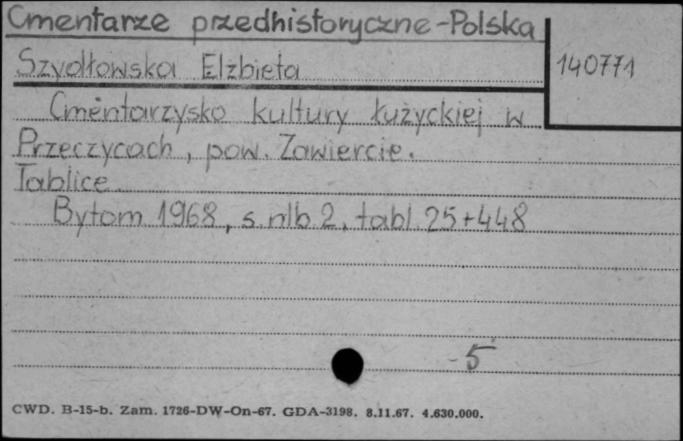 Cmentarze przedhistoryczne-Polska
140771
Szydłowska Elżbieta
Cmentarzysko kultury łużyckiej w
Przeczycach, pow. Zawiercie.
Tablice.
Bytom 1968, s. nlb 2, tabl. 25+448
-5
CWD. B-15-b. Zam. 1726-DW-On-67. GDA-3198. 8.11.67. 4.630.000.